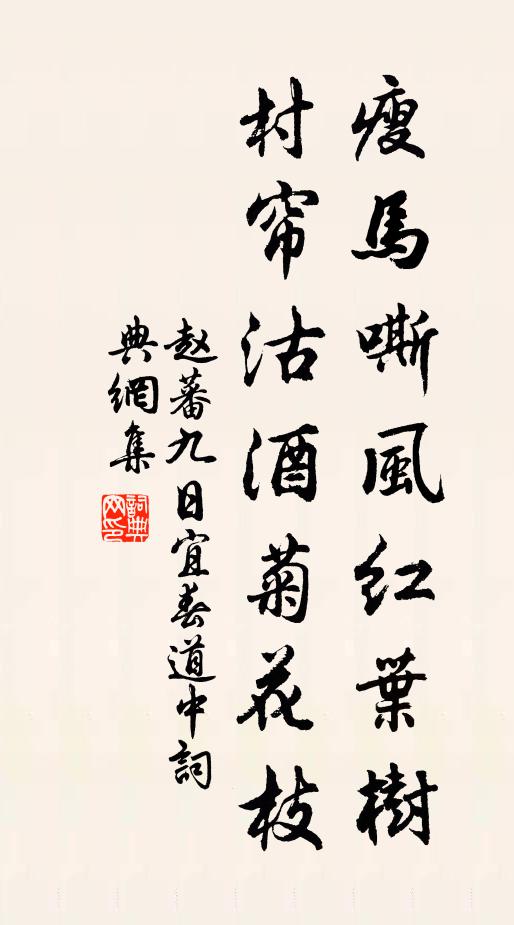 瘦馬嘶風红葉樹
村帘沽酒菊花枝
赵蕃九日宜春道中詞
典網集
詞典
网印